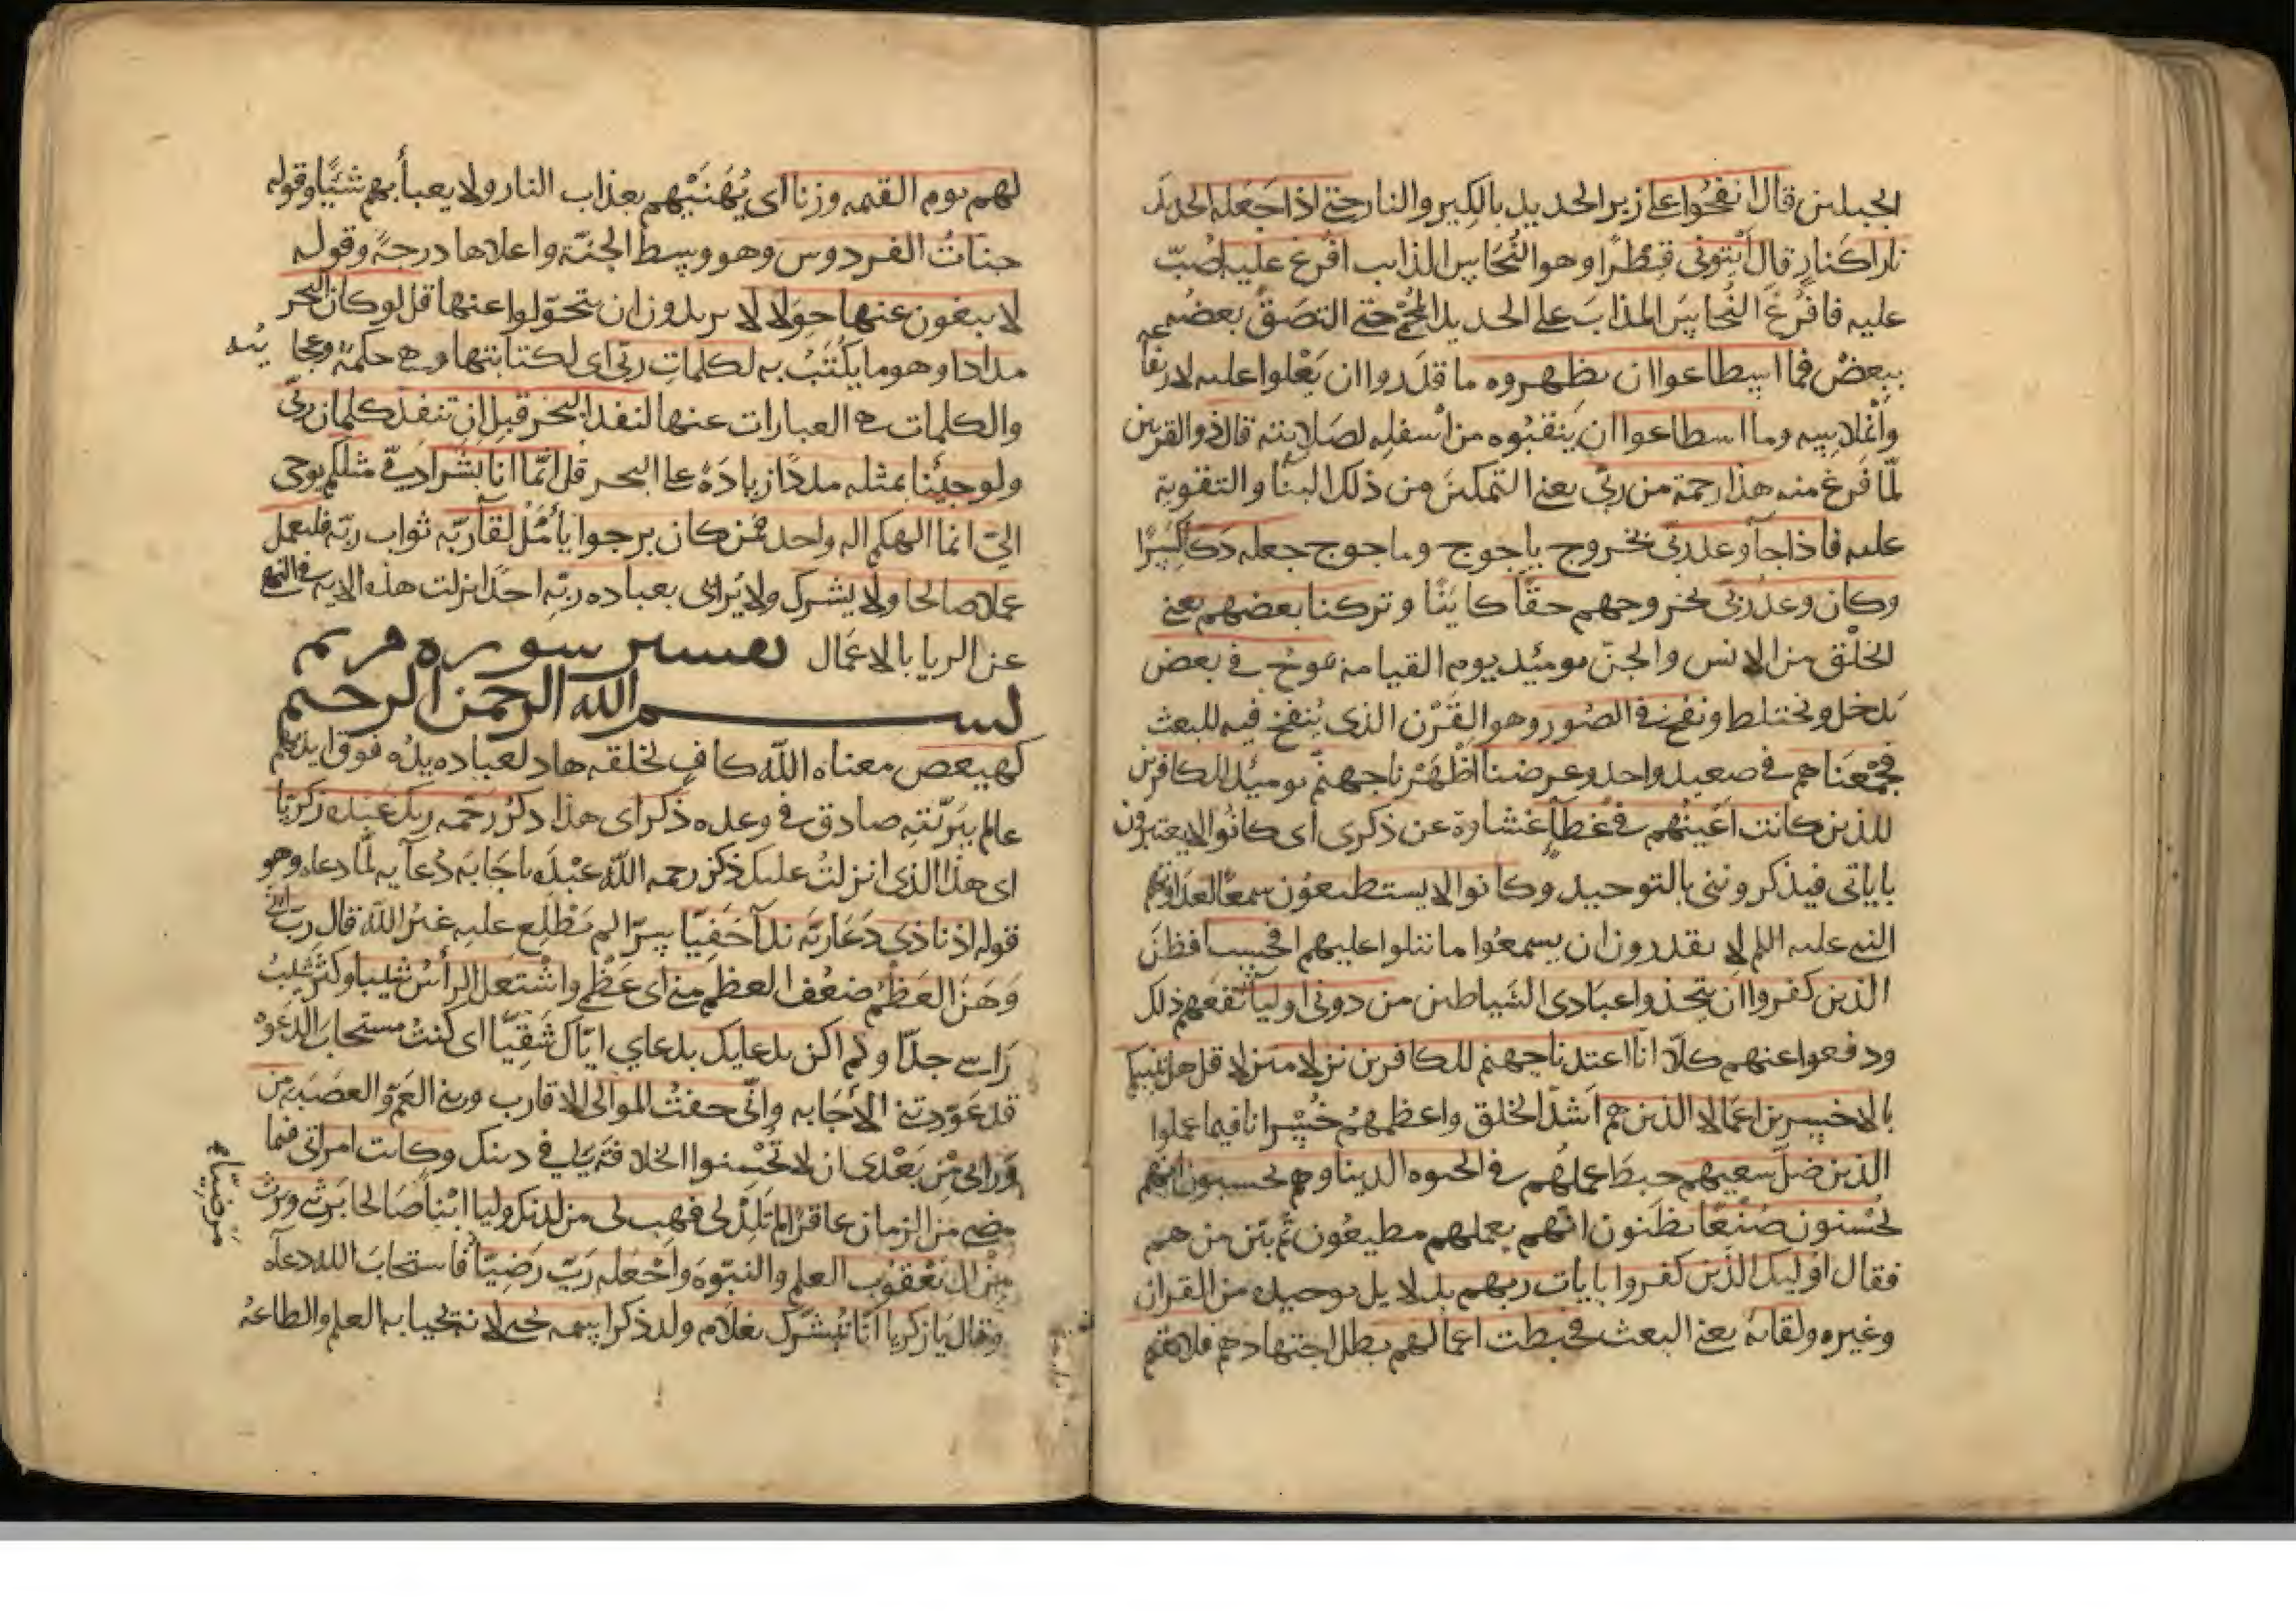 الجبلين قال انفخوا على زبر الحديد بالكير والنار حتى اذا جعله الحديد
نارا كنار قال آتوني قطرا وهو النحاس المذاب افرغ عليه اصب
عليه فافرغ النحاس المذاب على الحديد المحمى حتى التصق بعضه
ببعض فما اسطاعوا ان يظهروه ما قدروا ان يعلوا عليه لارتفاعه
واملاسه وما استطاعوا ان ينقبوه من اسفله لصلابته قال ذو القرنين
لمّا فرغ منه هذا رحمة من ربي يعني التمكين من ذلك البنا والتقوية
عليه فاذا جا وعد ربي بخروج ياجوج وماجوج جعله دكا كسرا
وكان وعد ربي بخروجهم حقا كاينا وتركنا بعضهم يعني
الخلق من الانس والجن يوميذ يوم القيامة يموج في بعض
يدخل ويختلط ونفخ في الصور وهو القرن الذي ينفخ فيه للبعث
فجمعناهم في صعيد واحد وعرضنا اظهرنا جهنم يوميذ للكافرين
للذين كانت اعينهم في غطا غشاوة عن ذكري اى كانوا لا يعتبرون
باياتي فيذكرونني بالتوحيد وكانوا لا يستطيعون سمعا لعداوتهم
النبي عليه السلم لا يقدرون ان يسمعوا ما يتلوا عليهم افحسب افظن
الذين كفروا ان يتخذوا عبادي الشياطين من دوني اوليا نفعهم ذلك
ودفعوا عنهم كلا انا اعتدنا جهنم للكافرين نزلا منزلا قل هل ننبيكم
بالاخسرين اعمالا الذين هم اشد الخلق واعظمهم خسرانا فيما عملوا
الذين ضل سعيهم حبط عملهم في الحيوه الدنيا وهم يحسبون انهم
يحسنون صنعا يظنون انهم بعملهم مطيعون ثم بين من هم
فقال اوليك الذين كفروا بايات ربهم بدلايل توحيده من القران
وغيره ولقايه يعني البعث فحبطت اعمالهم بطل اجتهادهم فلا نقيم
لهم يوم القيمه وزنا اى نهينهم بعذاب النار ولا يعبأ بهم شيئا وقوله
جنات الفردوس وهو وسط الجنة واعلاها درجة وقوله
لا يبغون عنها حولا لا يريدون ان يتحولوا عنها قل لو كان البحر
مدادا وهو ما يكتب به لكلمات ربي اى لكتابتها وهي حكمة وعجايبه
والكلمات هي العبارات عنها لنفد البحر قبل ان تنفد كلمات ربي
ولو جئنا بمثله مددا زيادة على البحر قل انما انا بشر ادمي مثلكم يوحى
الي انما الهكم اله واحد فمن كان يرجوا يأمل لقآ ربه ثواب ربه فليعمل
عملا صالحا ولا يشرك ولا يرائى بعباده ربه احدا نزلت هذه الايه في النهي
عن الريا بالاعمال تفسير سوره مريم
بسم الله الرحمن الرحيم
كهيعص معناه الله كاف لخلقه هاد لعباده يده فوق ايديهم
عالم ببريّته صادق في وعده ذكر اى هذا ذكر رحمه ربك عبده زكريا
اى هذا الذى انزلت عليك ذكر رحمه الله عبده باجابه دعآيه لمّا دعاه وهو
قوله اذ نادى دعا ربه ندآ خفيا سرا لم يطلع عليه غير الله قال رب انى
وهن العظم ضعف العظم منى اى عظمي واشتعل الرأس شيبا وكثر شيب
راسى جدا ولم اكن بدعايك بدعاي اياك شقيا اى كنت مستجاب الدعوه
قد عودتني الاجابه وانى خفت الموالى الاقارب وبني العم والعصبه من
وراءى من بعدى ان لا يحسنوا الخلافة لي في دينك وكانت امراتى فيما
مضى من الزمان عاقرا لم تلد لى فهب لى من لدنك وليا ابنا صالحا يرثني ويرث
من ال يعقوب العلم والنبوه واجعله رب رضيا فاستجاب الله دعآه
وقال يا زكريا انا نبشرك بغلام ولد ذكر اسمه يحيى لانه يحيا به العلم والطاعه
مرضيا